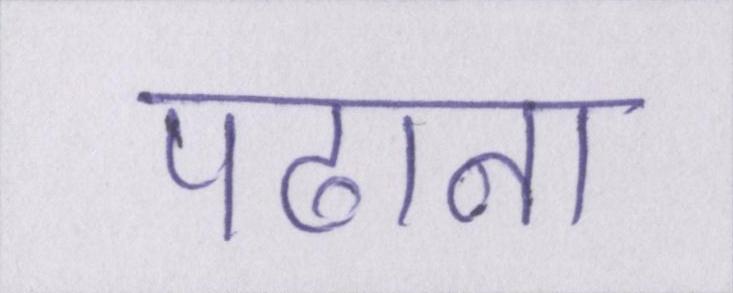 पढाना